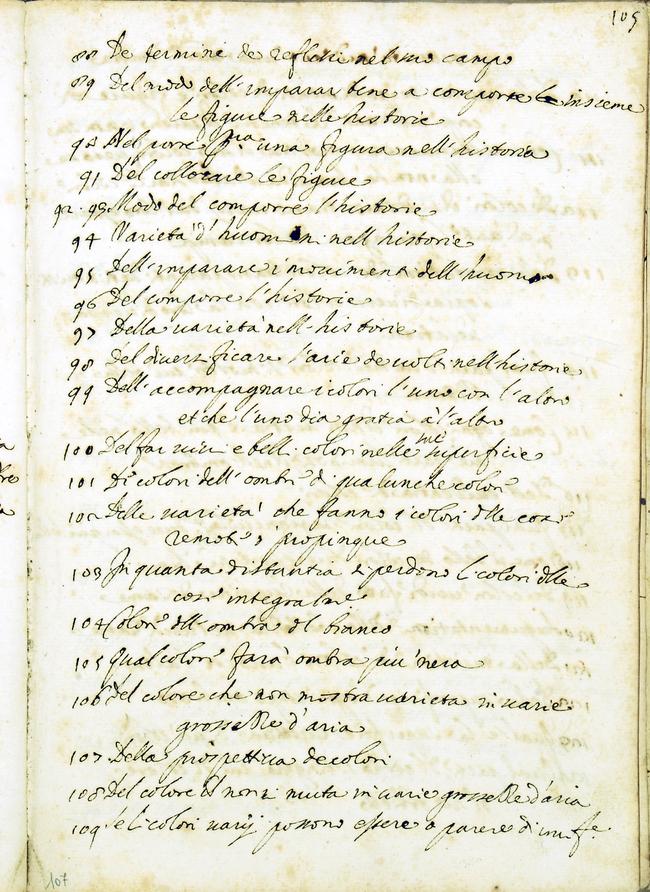 105
88 De termini de reflessi nel suo campo
89 Del modo dell'imparar bene a comporre insieme
le figure nelle historie
90 Nel porre p.ra una figura nell'historia
91 Del collocare le figure
92. 93 Modo del comporre l'historie
94 Varietà d'huomini nell historie
95 Dell'imparare i movimenti dell'huomo
96 Del comporre l'historie
97 Della varietà nell'historie
98 Del diversificare l'arie de volti nell'historie
99 Dell'accompagnare i colori l'uno con l'altro
et che l'uno dia gratia à l'altro
100 Del far vivi e belli colori nelle sue superficie
101 De colori dell'ombre di qualunche colore
102 Delle varietà che fanno i colori delle cose
remote e propinque
103 In quanta distantia si perdono li colori delle
cose integralme
104 Colore dell'ombra del bianco
105 Qual colore farà ombra più nera
106 Del colore che non mostra varietà in varie
grossezze d'aria
107 Della prospettiva de colori
108 Del colore che non si muta in varie grossezze d'aria
109 Se li colori varij possono essere o parere di
107